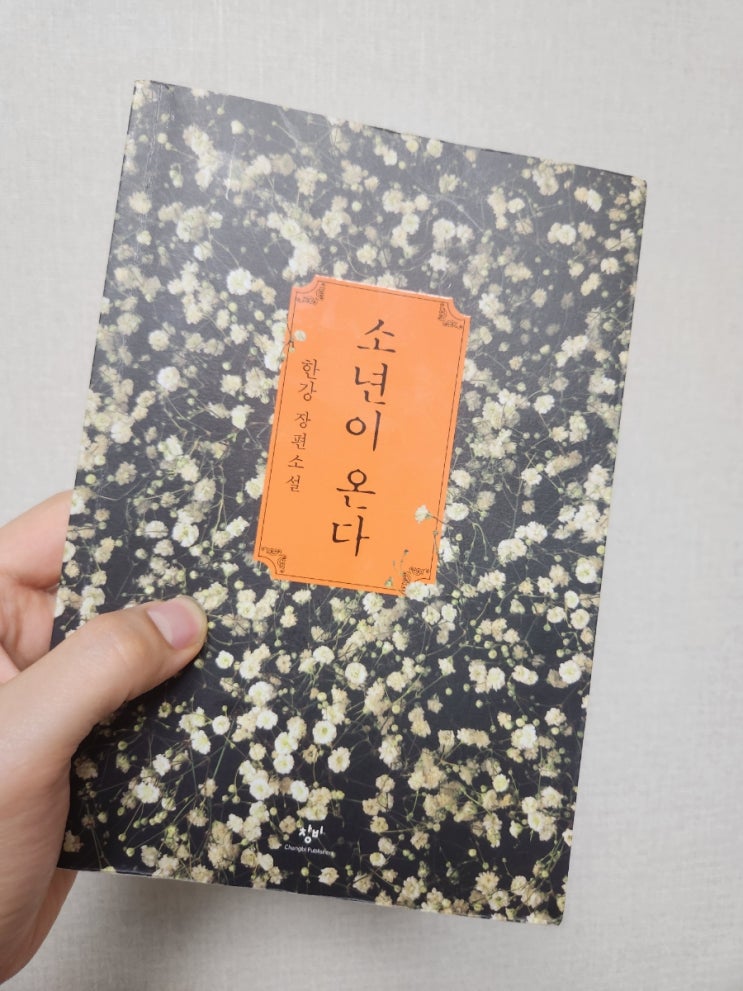 소년이 온다
한강 장편소설
창비
Changbi Publishers